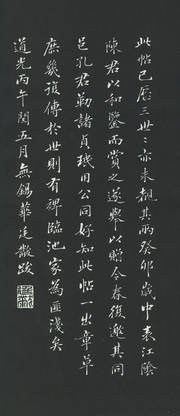 此帖已歷三世〻亦未覯其兩癸卯歲中表江陰
陳君以和鑒而賞之遂舉以贈今春復邀其同
邑孔君勒諸貞珉用公同好知此帖一出章草
庶幾復傳於世則有裨臨池家為匪淺矣
道光丙午閏五月無錫華廷黻跋